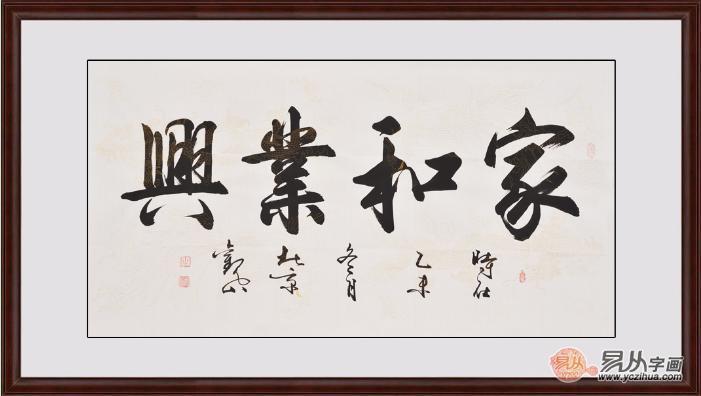 家和業興
時在
乙未
冬月
北京
易从字画
www.yczihua.com